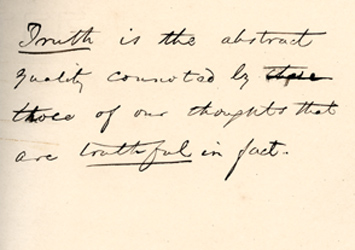 Truth is the abstract
quality connoted by
those of our thoughts that
are truthful in fact.